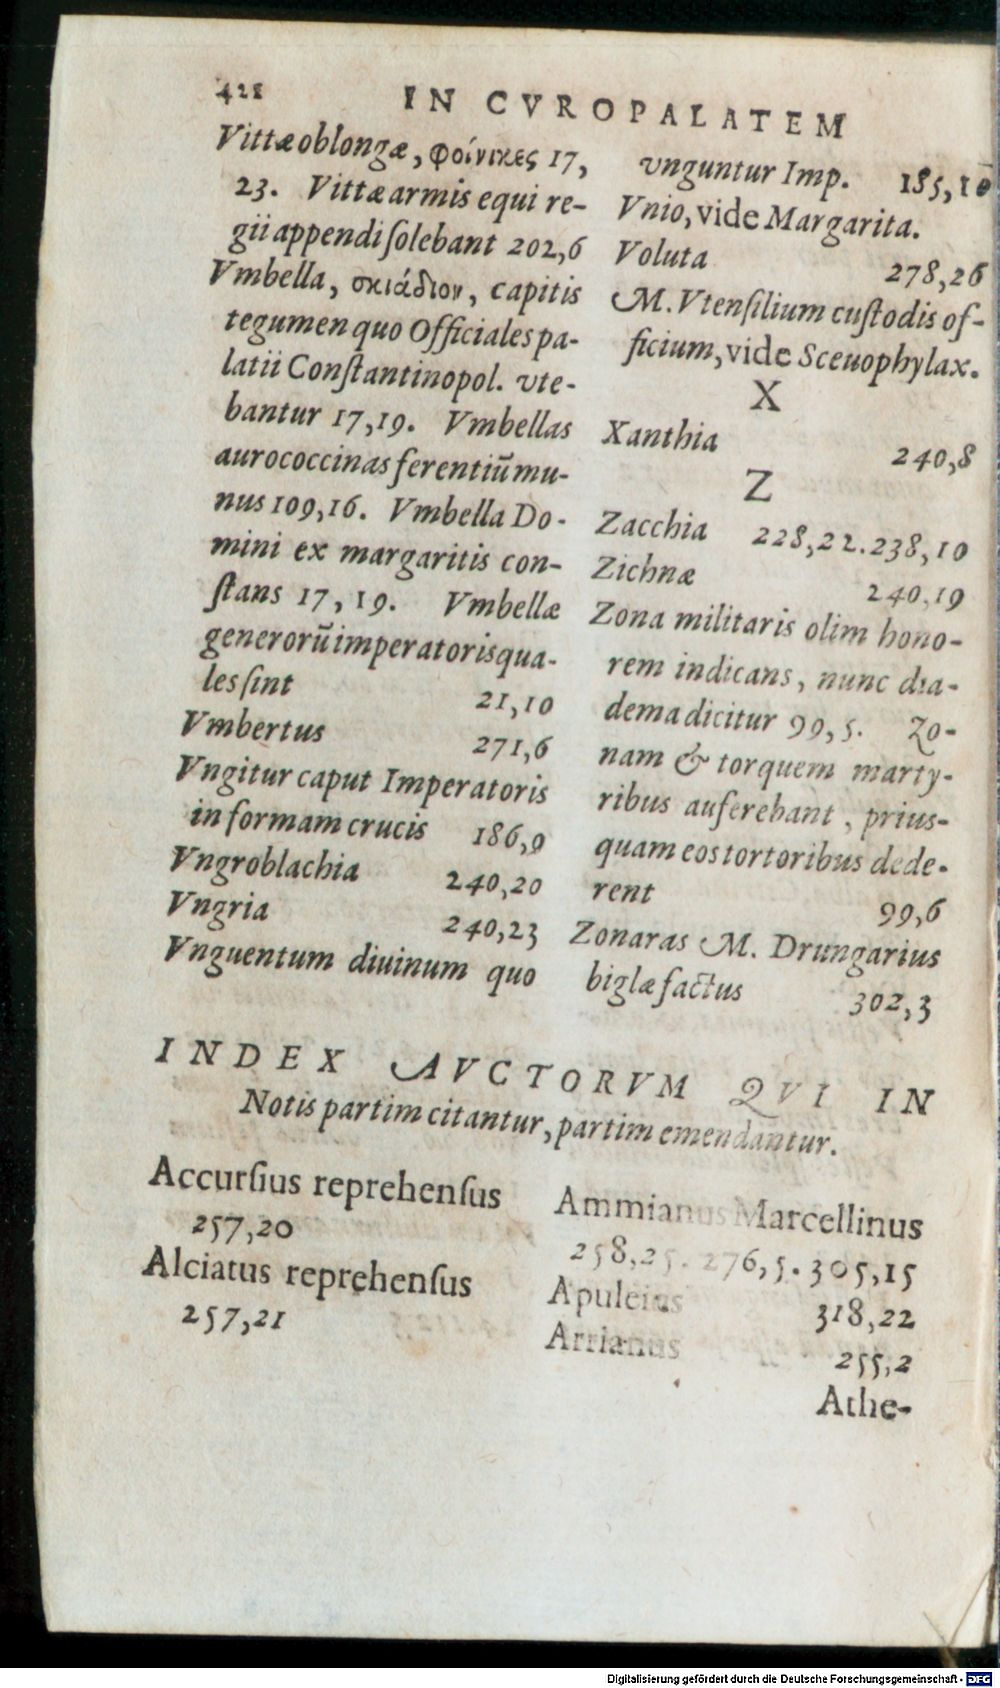 428
IN CVROPALATEM
Vittæ oblongæ, φοίνικες 17,
23. Vittæ armis equi re-
gii appendi ſolebant 202,6
Vmbella, σκιάδιον, capitis
tegumen quo Officiales pa-
latii Conſtantinopol. vte-
bantur 17,19. Vmbellas
aurococcinas ferentiũ mu-
nus 109,16. Vmbella Do-
mini ex margaritis con-
ſtans 17,19. Vmbellæ
generorũ imperatoris qua-
les ſint 21,10
Vmbertus 271,6
Vngitur caput Imperatoris
in formam crucis 186,9
Vngroblachia 240,20
Vngria 240,23
Vnguentum diuinum quo
vnguntur Imp. 185,10
Vnio, vide Margarita.
Voluta 278,26
M. Vtenſilium cuſtodis of-
ficium, vide Sceuophylax.
X
Xanthia 240,8
Z
Zacchia 228,22.238,10
Zichnæ 240,19
Zona militaris olim hono-
rem indicans, nunc dia-
dema dicitur 99,5. Zo-
nam & torquem marty-
ribus auferebant, prius-
quam eos tortoribus dede-
rent 99,6
Zonaras M. Drungarius
biglæ factus 302,3
INDEX AVCTORVM QVI IN
Notis partim citantur, partim emendantur.
Accurſius reprehenſus
257,20
Alciatus reprehenſus
257,21
Ammianus Marcellinus
258,25. 276,5. 305,15
Apuleius 318,22
Arrianus 255,2
Athe-
Digitalisierung gefördert durch die Deutsche Forschungsgemeinschaft - DFG